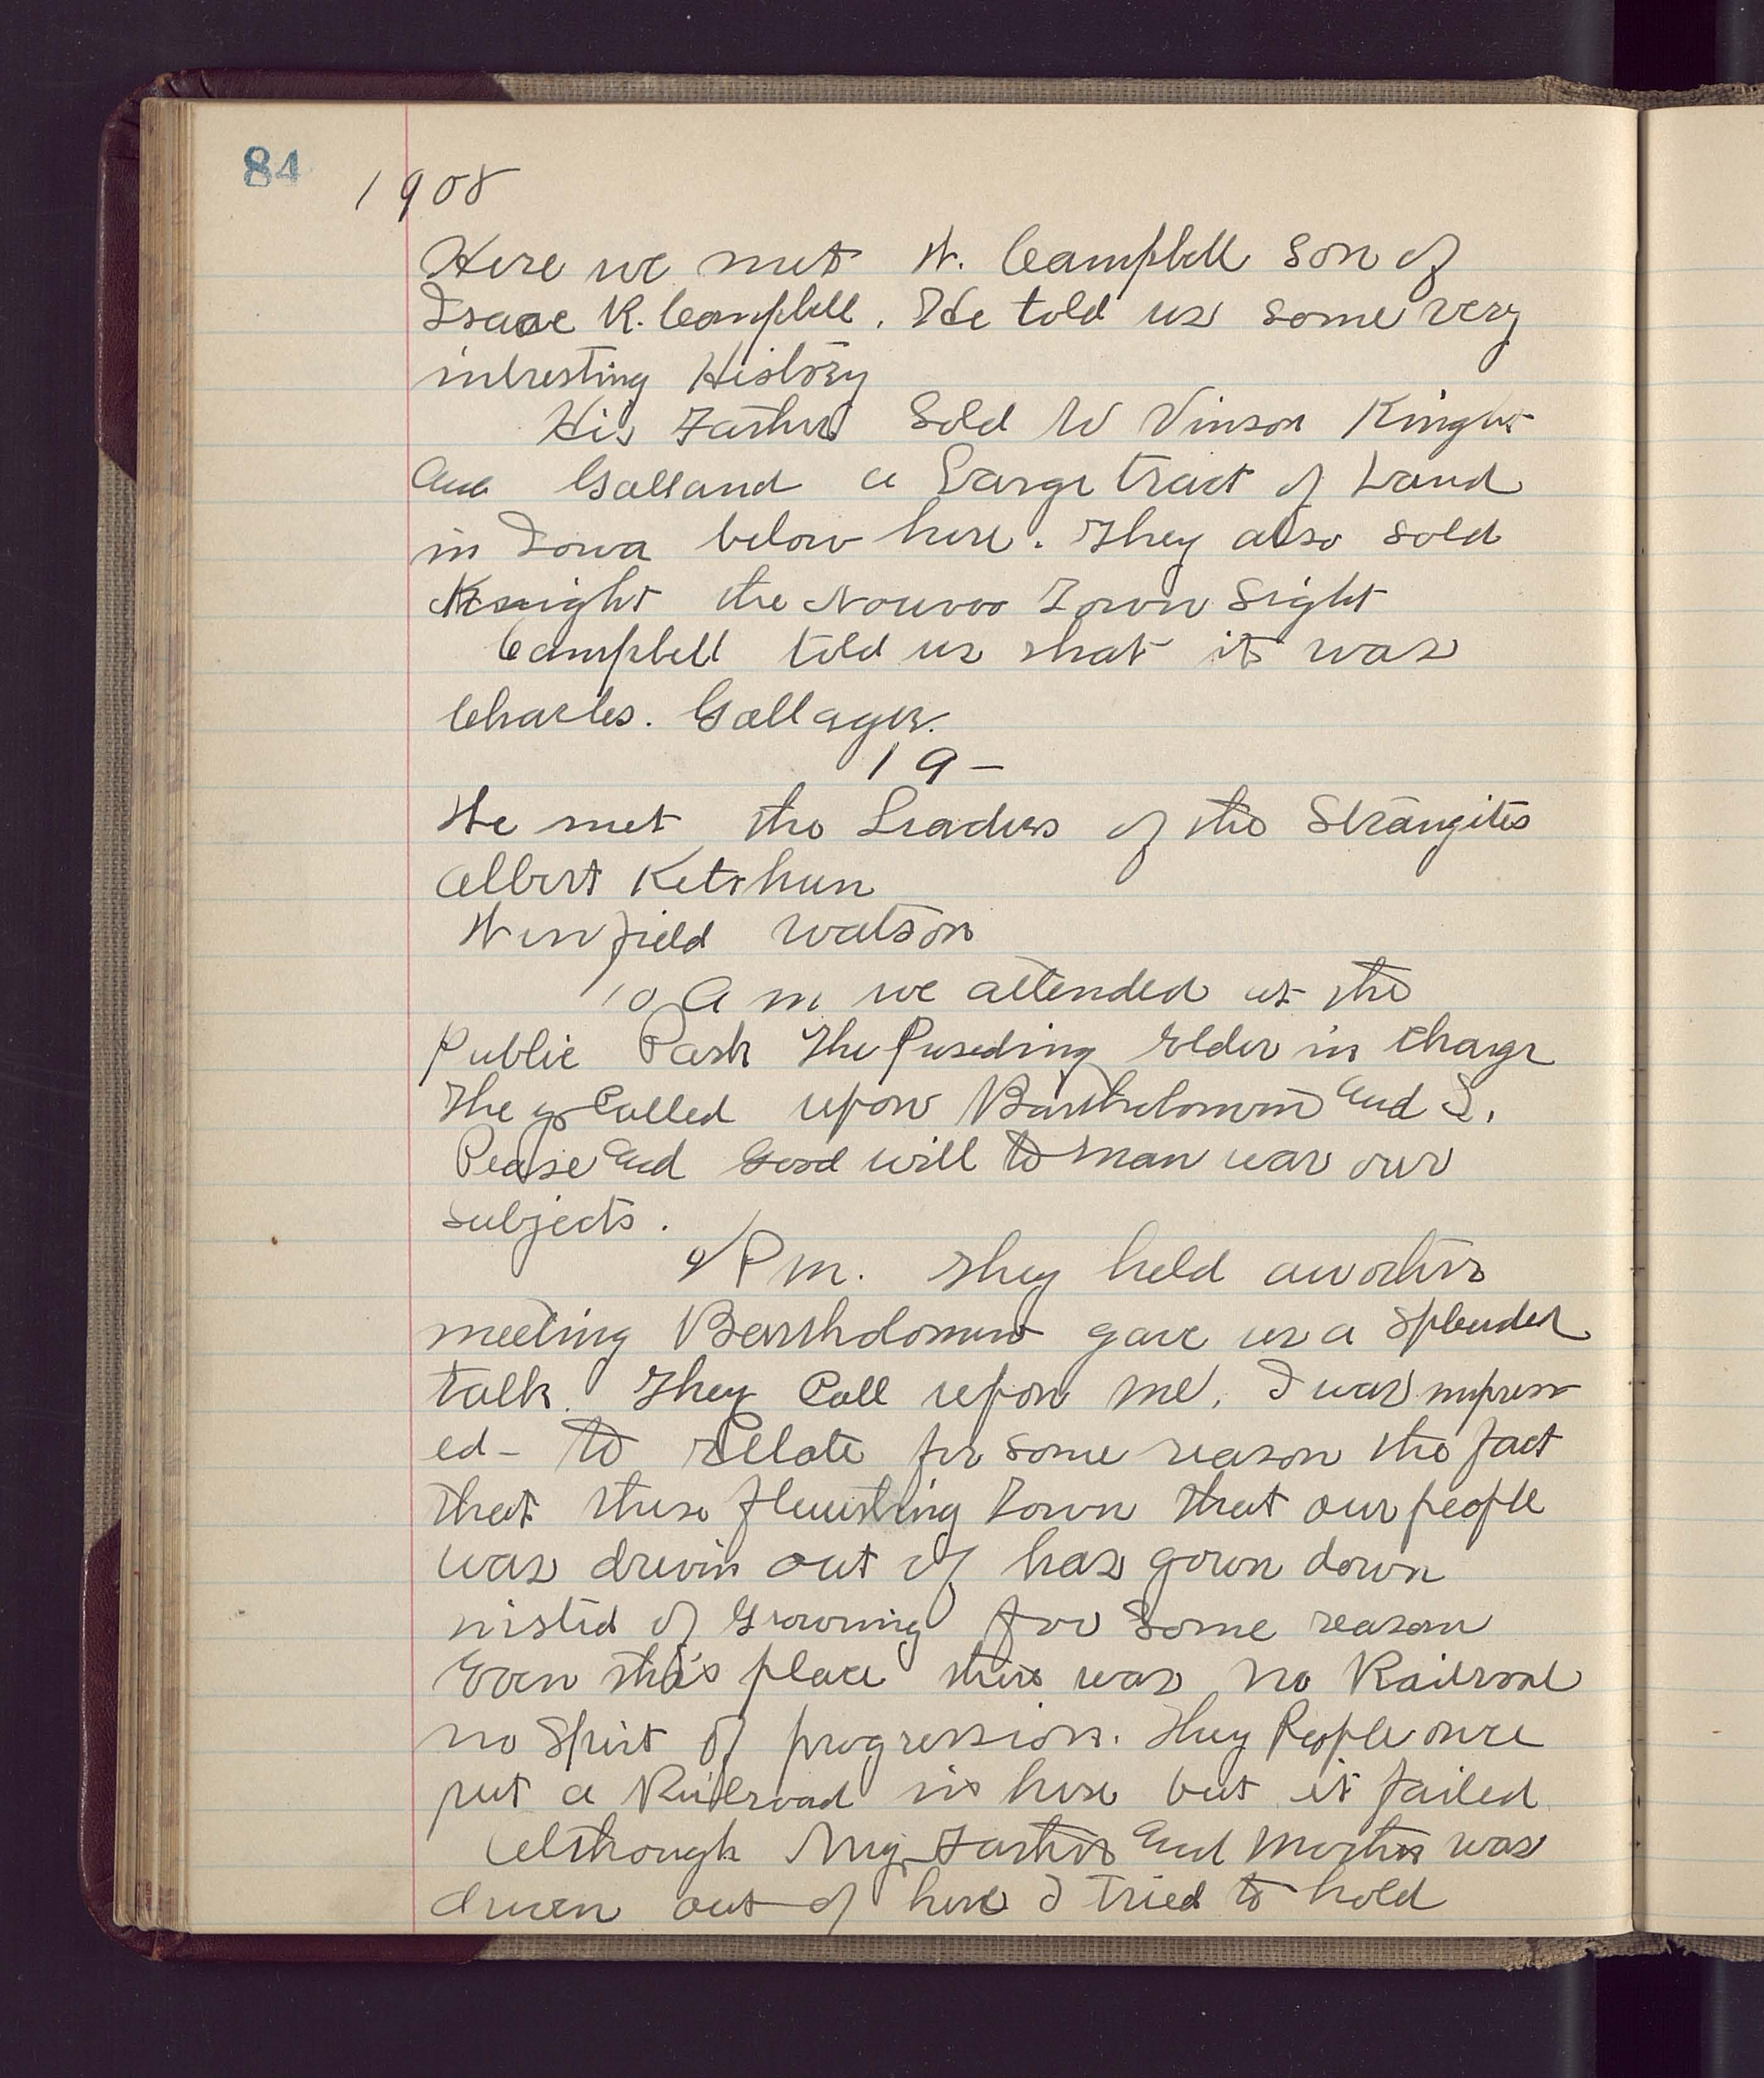 84
1908
Here we met W. Campbell Son of
Isaac R. Campbell. He told us some very
intresting History
His Father Sold to Vinson Kinght
and Galland a Large tract of Land
in Iowa below here. They also sold
Knight the Nouvoo Town Sight
Campbell told us that it was
Charles. Gallager.
19-
We met the Leaders of the Strangites
Albert Ketchun
Winfield Watson
10 A m we attended at the
Public Park The Preseding Elder in charge
They Called upon Bartholomew and I.
Pease and Good will to man war our
subjects.
PM. They held another
meeting Bartholomew gave us a splended
talk. They Call upon me. I was impress
ed - to rellate for some reason the fact
that these flurishing Town that our people
was drivin out of has gown down
nisted of Growing for Some reason
Even this place there was no Railroad
no Spirt of progression. They People once
put a Railroad in here but it failed
Although My Father and Mother was
driven out of here I tried to hold